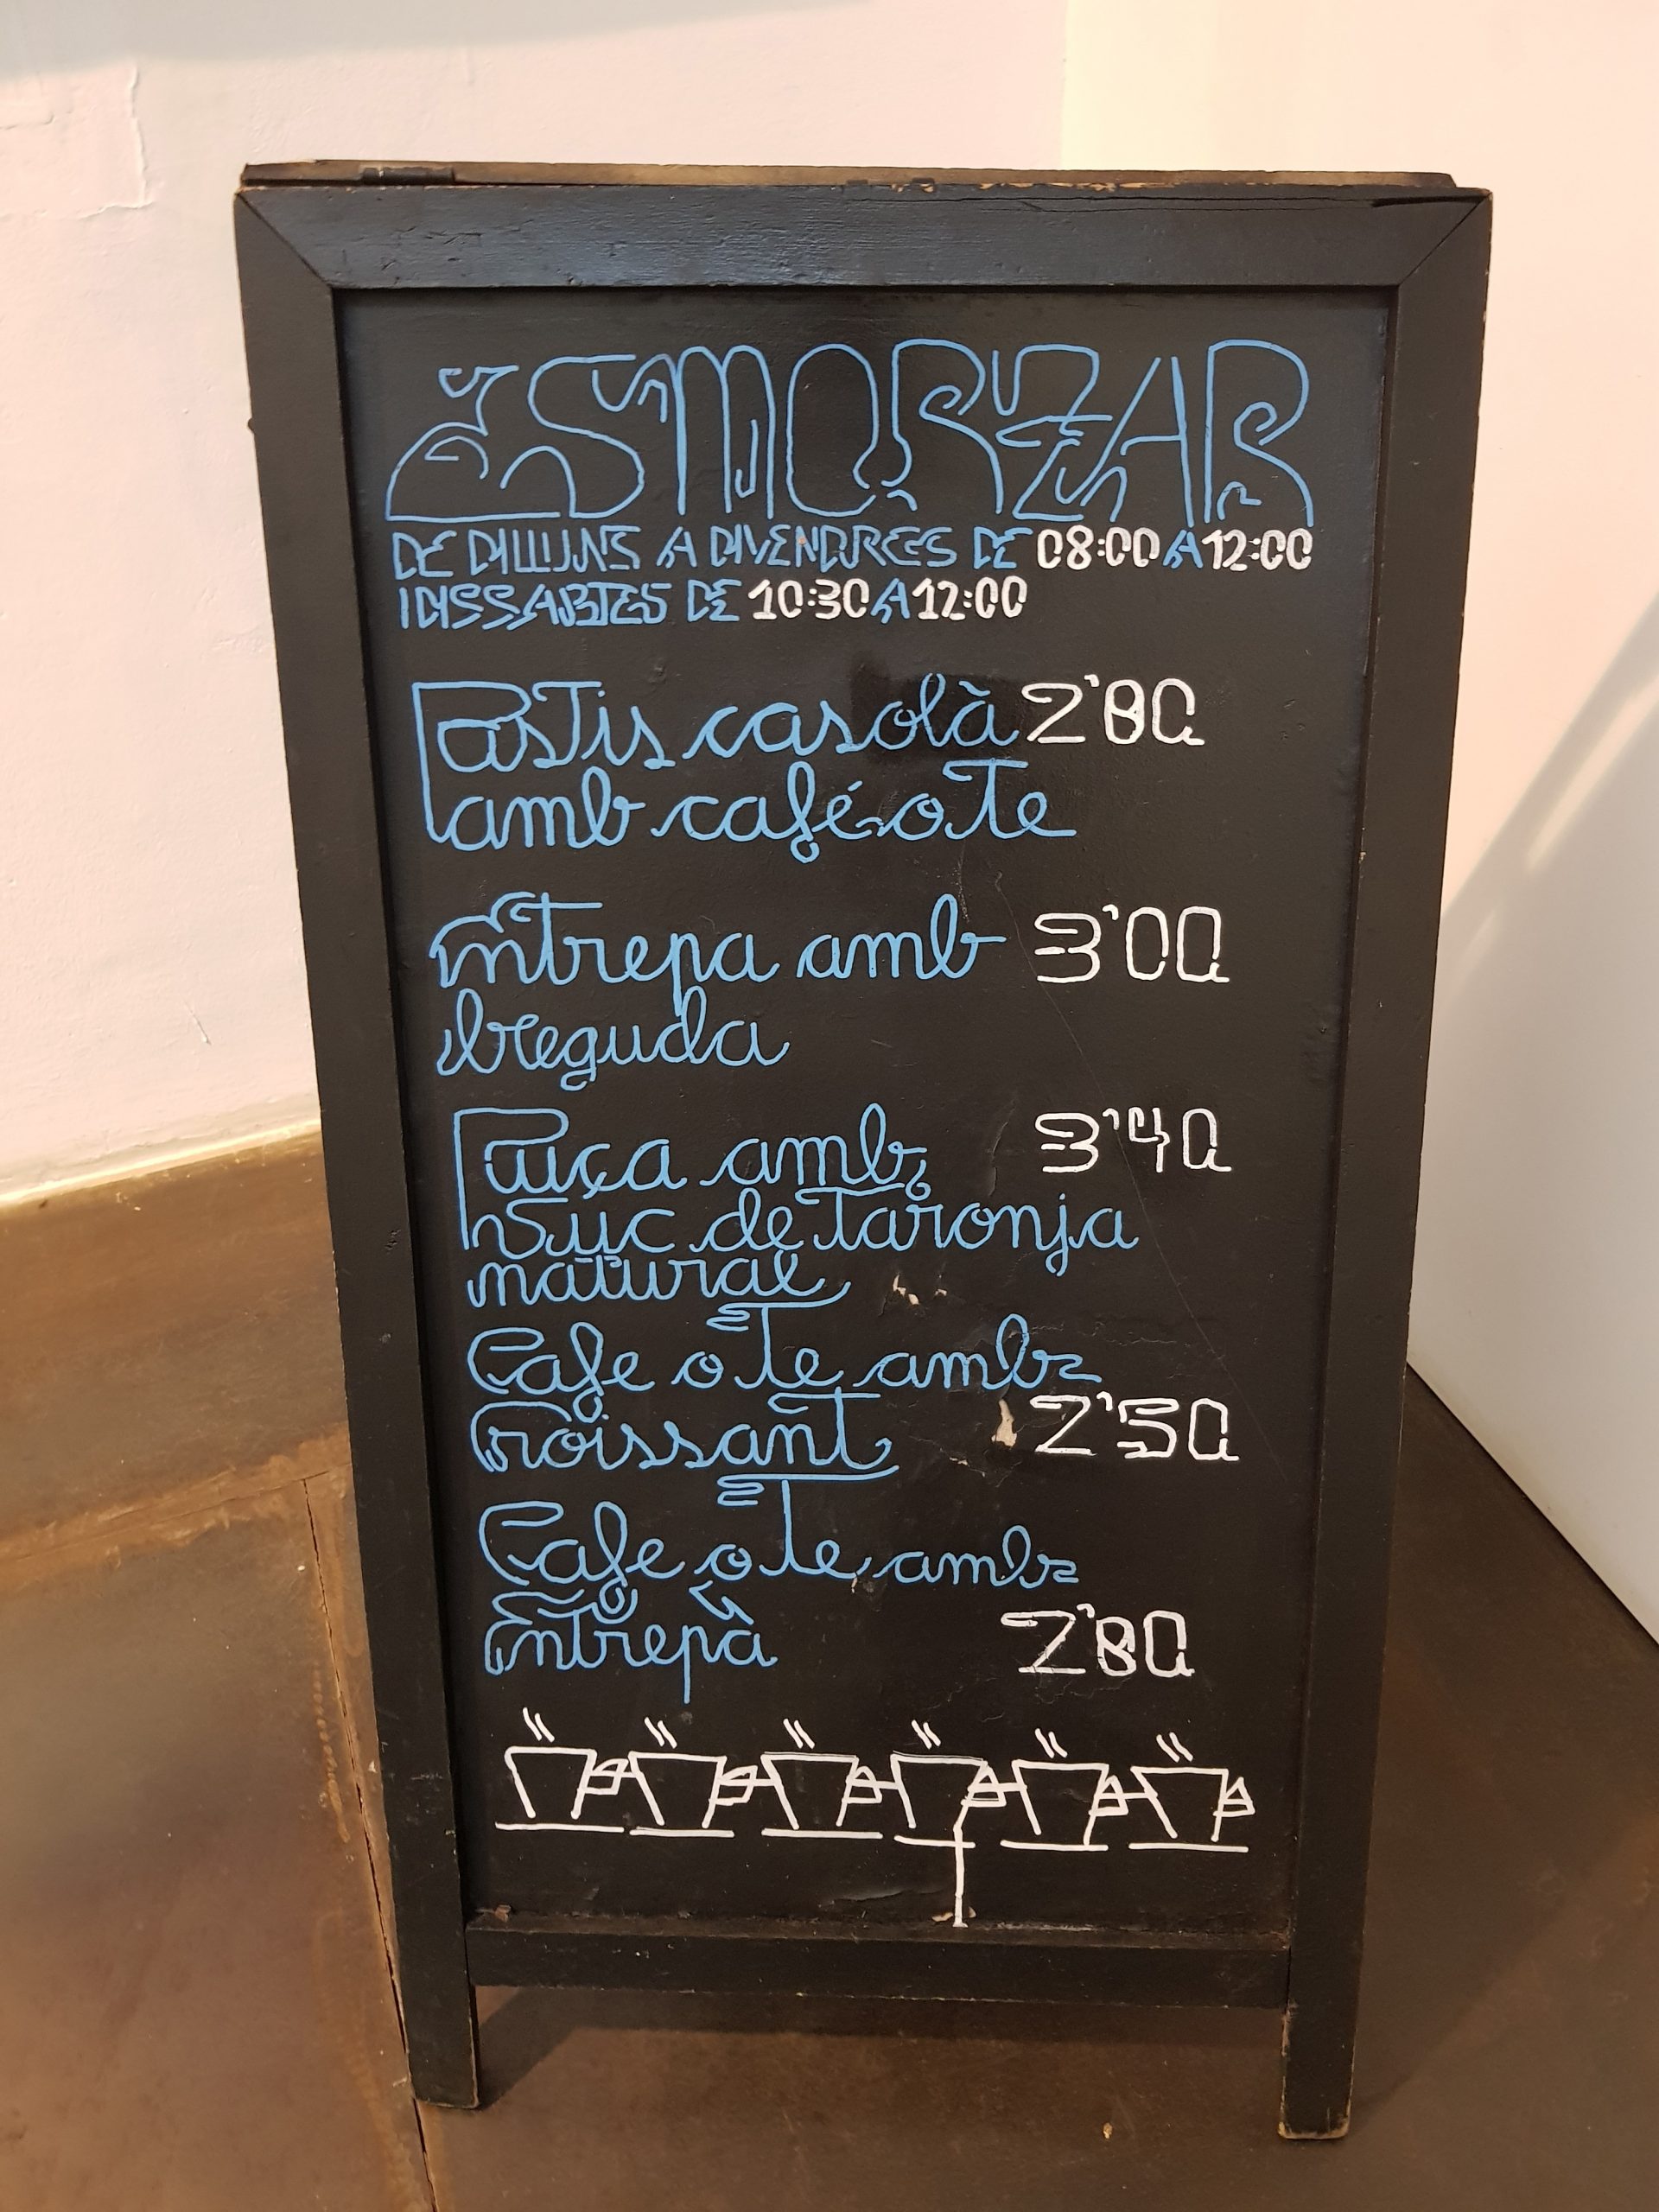 ESMORZAR
DE DILLUNS A DIVENDRES DE 08:00 A 12:00
I DISSABTES DE 10:30 A 12:00
Pastis casolà 2'80
amb café o te
Entrepa amb 3'00
breguda
Pasta amb 3'40
Suc de taronja
natural
Cafe o te amb
Croissant 2'50
Cafe o te amb
Entrepà 2'80